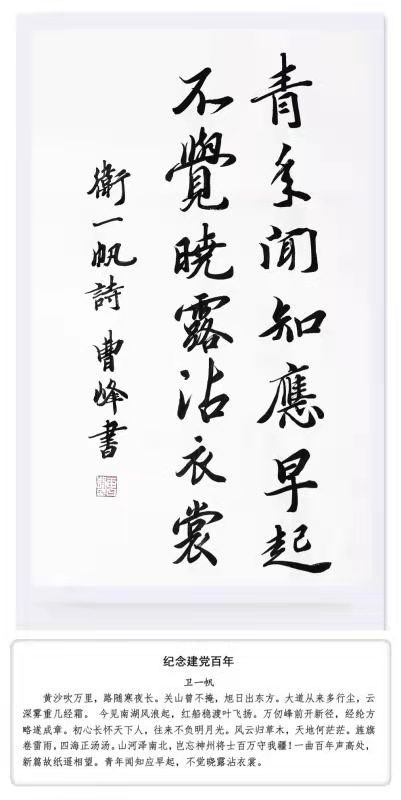 青年聞知應早起
不覺曉露沾衣裳
衛一帆詩 曹峰書
纪念建党百年
卫一帆
黄沙吹万里，路随寒夜长。关山曾不掩，旭日出东方。大道从来多行尘，云
深雾重几经霜。 今见南湖风浪起，红船稳渡叶飞扬。万仞峰前开新径，经纶方
略遂成章。初心长怀天下人，往来不负明月光。风云归草木，天地何茫茫。旌旗
卷雷雨，四海正汤汤。山河泽南北，岂忘神州将士百万守我疆！一曲百年声高处，
新篇故纸遥相望。青年闻知应早起，不觉晓露沾衣裳。